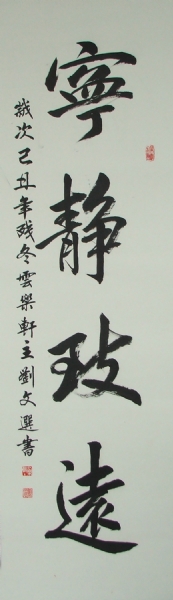 寧靜致遠
歲次己丑年殘冬雲樂軒主劉文選書